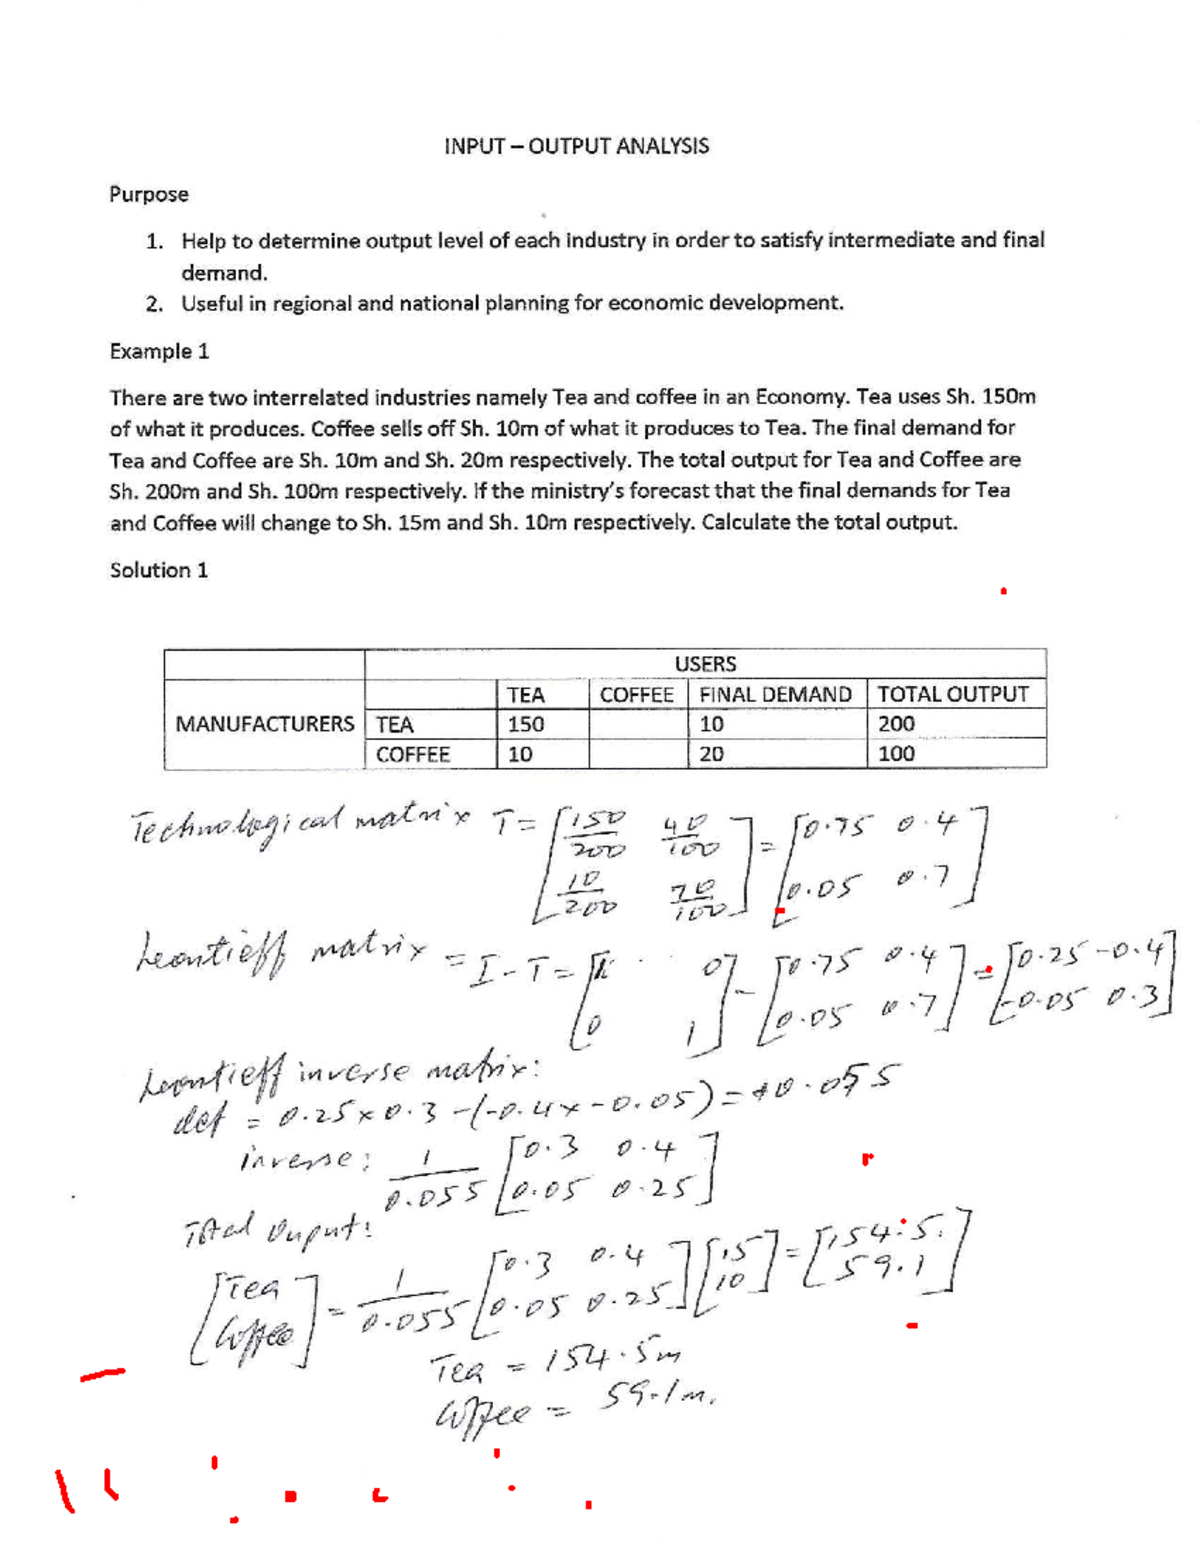 INPUT – OUTPUT ANALYSIS
Purpose
1. Help to determine output level of each industry in order to satisfy intermediate and final
demand.
2. Useful in regional and national planning for economic development.
Example 1
There are two interrelated industries namely Tea and coffee in an Economy. Tea uses Sh. 150m
of what it produces. Coffee sells off Sh. 10m of what it produces to Tea. The final demand for
Tea and Coffee are Sh. 10m and Sh. 20m respectively. The total output for Tea and Coffee are
Sh. 200m and Sh. 100m respectively. If the ministry's forecast that the final demands for Tea
and Coffee will change to Sh. 15m and Sh. 10m respectively. Calculate the total output.
Solution 1
USERS
TEA COFFEE FINAL DEMAND TOTAL OUTPUT
MANUFACTURERS TEA 150 10 200
COFFEE 10 20 100
Technological matrix T = [150/200 40/100] = [0.75 0.4]
[10/200 70/100] [0.05 0.7]
Leontieff matrix = I - T = [1 0] - [0.75 0.4] = [0.25 -0.4]
[0 1] [0.05 0.7] [-0.05 0.3]
Leontieff inverse matrix:
det = 0.25 x 0.3 - (-0.4 x -0.05) = 0.055
inverse: 1/0.055 [0.3 0.4]
[0.05 0.25]
Total Ouput:
[Tea] = 1/0.055 [0.3 0.4] [15] = [154.5]
[Coffee] [0.05 0.25] [10] [59.1]
Tea = 154.5m
Coffee = 59.1m.